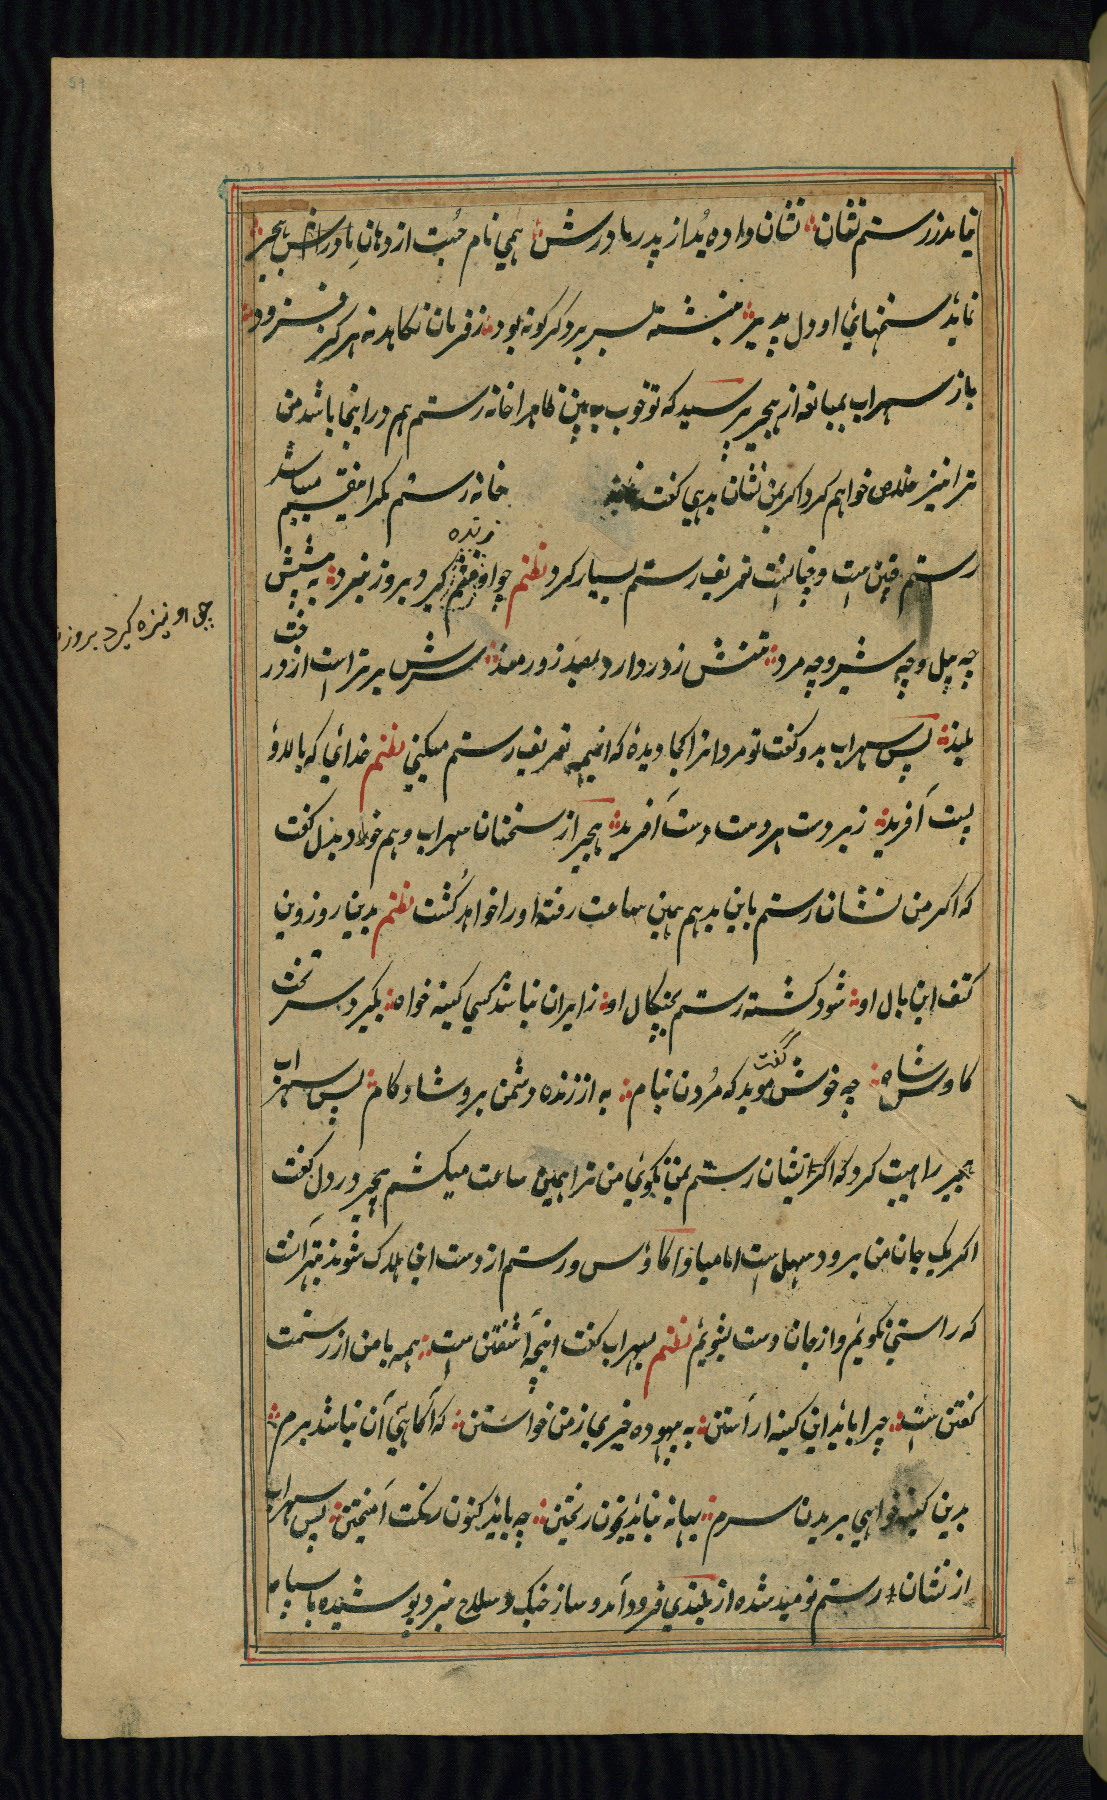 نیامد ز رستم نشان نشان داده بُد از پدر مادرش همی نام جُست از دهانِ هجیر
نماید سخنهای او دلپذیر نبشته بسر بر دگرگونه بود ز فرمان نکاهد نه هرگز فزود
باز سهراب بمبالغه از هجیر پرسید که تو خوب ببین ظاهرا خانه رستم هم در اینجا باشد من
ترا نیز خلاص خواهم کرد اگر بمن نشان بدهی گفت خانه رستم مقیم میباشد
رستم و تعریف رستم بسیار کرد نظم چو او گیرد بروز نبرد به پیشش
زنده
چه پیل و چه شیر و چه مرد تنش زور دارد بصد زورمند سرش برتر است از درخت
بلند پس سهراب بدو گفت تو مردانرا کجا دیدهٔ که اینهمه تعریف رستم میکنی نظم خدائی که بالا و
پست آفرید زبردست هر دست دست آفرید هجیر از سخنان سهراب وهم خورد بدل گفت
که اگر من نشان رستم باین بدهم همین ساعت رفته او را خواهد کُشت نظم بدین زور و این
کتف این یال او شود کشته رستم بچنگال او ز ایران نباشد کسی کینه خواه بگیرد سر تخت
کاوس شاه چه خوش گفت موبد که مُردن بنام به از زنده دشمن برو شادکام پس سهراب
هجیر را هیبت کرد که اگر نشان رستم بمن نگوئی من ترا همین ساعت میکشم هجیر در دل گفت
اگر یک جان من برود سهل است اما مبادا کاؤس و رستم از دست اینها هلاک شوند بهتر آنست
که راستی نگویم و از جان دست بشویم نظم بسهراب گفت اینچه آشفتن است همه با من از رستمت
گفتن است چرا باید این کینه آراستن به بیهوده چیزی از من خواستن که آگاهی آن نباشد برم
بدین کینه خواهی بریدن سرم بهانه نباید بخون ریختن چه باید کنون رنگت آمیختن پس سهراب
از نشان رستم نومید شده از بلندی فرود آمد و ساز جنگ و سلاح نبرد پوشیده با سپاه
چو او نیزه گیرد بروز